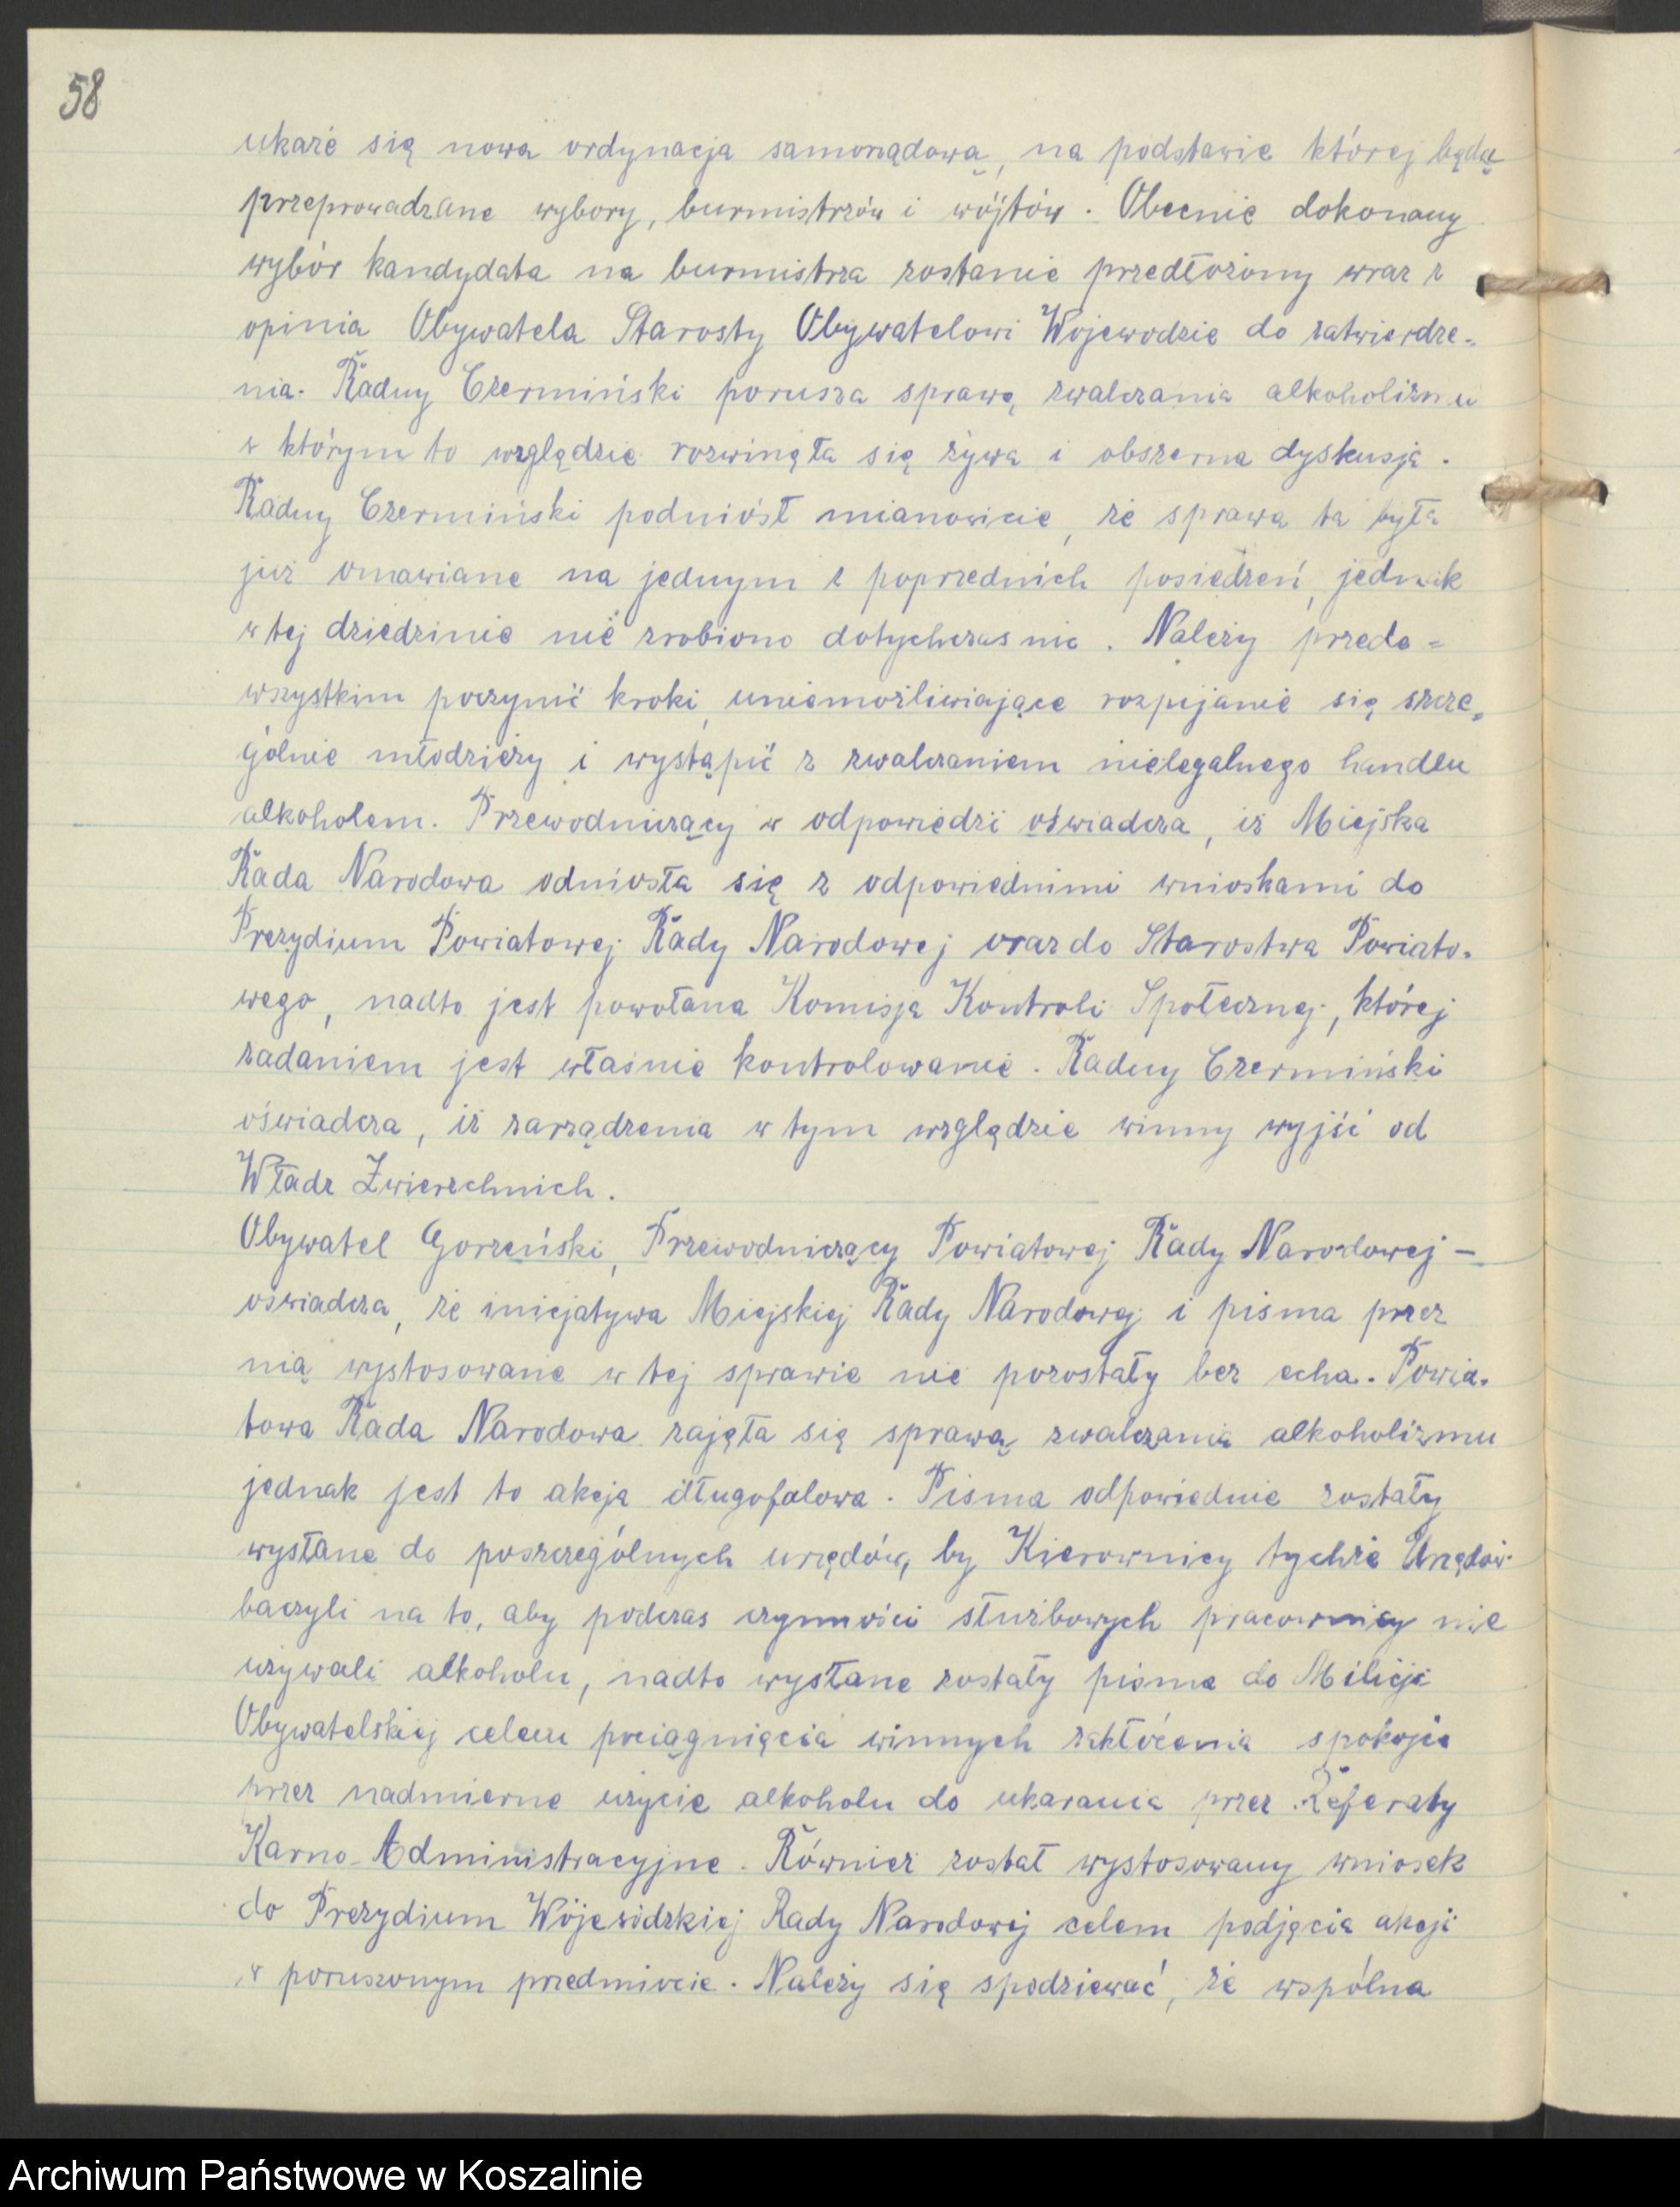 58
ukaże się nowa ordynacja samorządowa, na podstawie której będą
przeprowadzane wybory, burmistrzów i wójtów. Obecnie dokonany
wybór kandydata na burmistrza zostanie przedłożony wraz z
opinia Obywatela Starosty Obywatelowi Wojewodzie do zatwierdze-
nia. Radny Czermiński porusza sprawę zwalczania alkoholizmu
w którym to względzie rozwinęła się żywa i obszerna dyskusja.
Radny Czermiński podniósł mianowicie, że sprawa ta była
już omawiane na jednym z poprzednich posiedzeń, jednak
w tej dziedzinie nie zrobiono dotychczas nic. Należy przede=
wszystkim poczynić kroki, uniemożliwiające rozpijanie się szcze=
gólnie młodzieży i wystąpić z zwalczaniem nielegalnego handlu
alkoholem. Przewodniczący w odpowiedzi oświadcza, iż Miejska
Rada Narodowa odniosła się z odpowiednimi wnioskami do
Prezydium Powiatowej Rady Narodowej oraz do Starostwa Powiato-
wego, nadto jest powołana Komisja Kontroli Społecznej, której
zadaniem jest właśnie kontrolowanie. Radny Czermiński
oświadcza, iż zarządzenia w tym względzie winny wyjść od
Władz Zwierzchnich.
Obywatel Gorzeński, Przewodniczący Powiatowej Rady Narodowej –
oświadcza, że inicjatywa Miejskiej Rady Narodowej i pisma przez
nią wystosowane w tej sprawie nie pozostały bez echa. Powia-
towa Rada Narodowa zajęła się sprawą zwalczania alkoholizmu
jednak jest to akcja długofalowa. Pisma odpowiednie zostały
wysłane do poszczególnych urzędów, by Kierownicy tychże Urzędów
baczyli na to, aby podczas czynności służbowych pracownicy nie
używali alkoholu, nadto wysłane zostały pisma do Milicji
Obywatelskiej celem pociągnięcia winnych zakłócenia spokoju
przez nadmierne użycie alkoholu do ukarania przez Referaty
Karno-Administracyjne. Również został wystosowany wniosek
do Prezydium Wojewódzkiej Rady Narodowej celem podjęcia akcji
w poruszonym przedmiocie. Należy się spodziewać, że wspólna
Archiwum Państwowe w Koszalinie